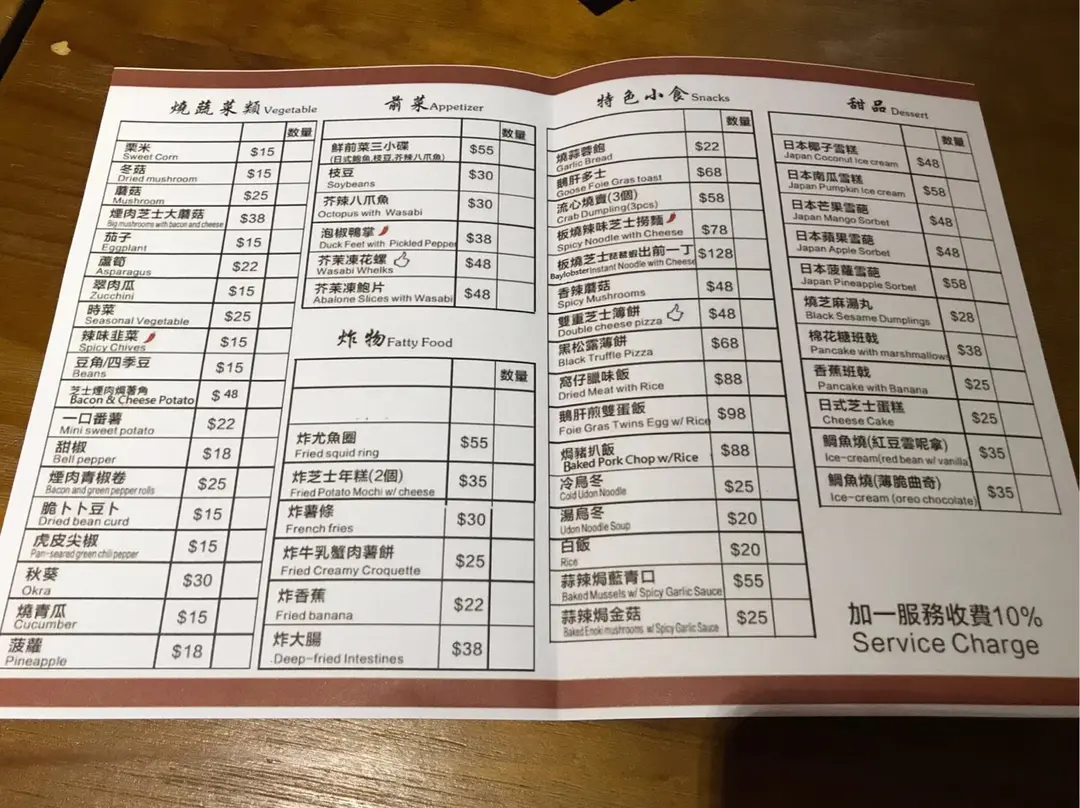 燒蔬菜類 Vegetable
數量
栗米 $15
Sweet Corn
冬菇 $15
Dried mushroom
蘑菇 $25
Mushroom
煙肉芝士大蘑菇 $38
Big mushrooms with bacon and cheese
茄子 $15
Eggplant
蘆筍 $22
Asparagus
翠肉瓜 $15
Zucchini
時菜 $25
Seasonal Vegetable
辣味韭菜 $15
Spicy Chives
豆角/四季豆 $15
Beans
芝士煙肉焗薯角 $48
Bacon & Cheese Potato
一口番薯 $22
Mini sweet potato
甜椒 $18
Bell pepper
煙肉青椒卷 $25
Bacon and green pepper rolls
脆卜卜豆卜 $15
Dried bean curd
虎皮尖椒 $15
Pan-seared green chili pepper
秋葵 $30
Okra
燒青瓜 $15
Cucumber
菠蘿 $18
Pineapple
前菜 Appetizer
數量
鮮前菜三小碟 $55
(日式鮑魚,枝豆,芥辣八爪魚)
枝豆 $30
Soybeans
芥辣八爪魚 $30
Octopus with Wasabi
泡椒鴨掌 $38
Duck Feet with Pickled Pepper
芥茉凍花螺 $48
Wasabi Whelks
芥茉凍鮑片 $48
Abalone Slices with Wasabi
炸物 Fatty Food
數量
炸尤魚圈 $55
Fried squid ring
炸芝士年糕(2個) $35
Fried Potato Mochi w/ cheese
炸薯條 $30
French fries
炸牛乳蟹肉薯餅 $25
Fried Creamy Croquette
炸香蕉 $22
Fried banana
炸大腸 $38
Deep-fried Intestines
特色小食 Snacks
數量
燒蒜蓉飽 $22
Garlic Bread
鵝肝多士 $68
Goose Foie Gras toast
流心燒賣(3個) $58
Crab Dumpling(3pcs)
板燒辣味芝士撈麵 $78
Spicy Noodle with Cheese
板燒芝士琵琶蝦出前一丁 $128
Baylobster Instant Noodle with Cheese
香辣蘑菇 $48
Spicy Mushrooms
雙重芝士薄餅 $48
Double cheese pizza
黑松露薄餅 $68
Black Truffle Pizza
窩仔臘味飯 $88
Dried Meat with Rice
鵝肝煎雙蛋飯 $98
Foie Gras Twins Egg w/ Rice
焗豬扒飯 $88
Baked Pork Chop w/Rice
冷烏冬 $25
Cold Udon Noodle
湯烏冬 $20
Udon Noodle Soup
白飯 $20
Rice
蒜辣焗藍青口 $55
Baked Mussels w/ Spicy Garlic Sauce
蒜辣焗金菇 $25
Baked Enoki mushrooms w/ Spicy Garlic Sauce
甜品 Dessert
數量
日本椰子雪糕 $48
Japan Coconut Ice cream
日本南瓜雪糕 $58
Japan Pumpkin Ice cream
日本芒果雪葩 $48
Japan Mango Sorbet
日本蘋果雪葩 $48
Japan Apple Sorbet
日本菠蘿雪葩 $58
Japan Pineapple Sorbet
燒芝麻湯丸 $28
Black Sesame Dumplings
棉花糖班戟 $38
Pancake with marshmallows
香蕉班戟 $25
Pancake with Banana
日式芝士蛋糕 $25
Cheese Cake
鯛魚燒(紅豆雲呢拿) $35
Ice-cream(red bean w/ vanilla
鯛魚燒(薄脆曲奇) $35
Ice-cream (oreo chocolate)
加一服務收費10%
Service Charge